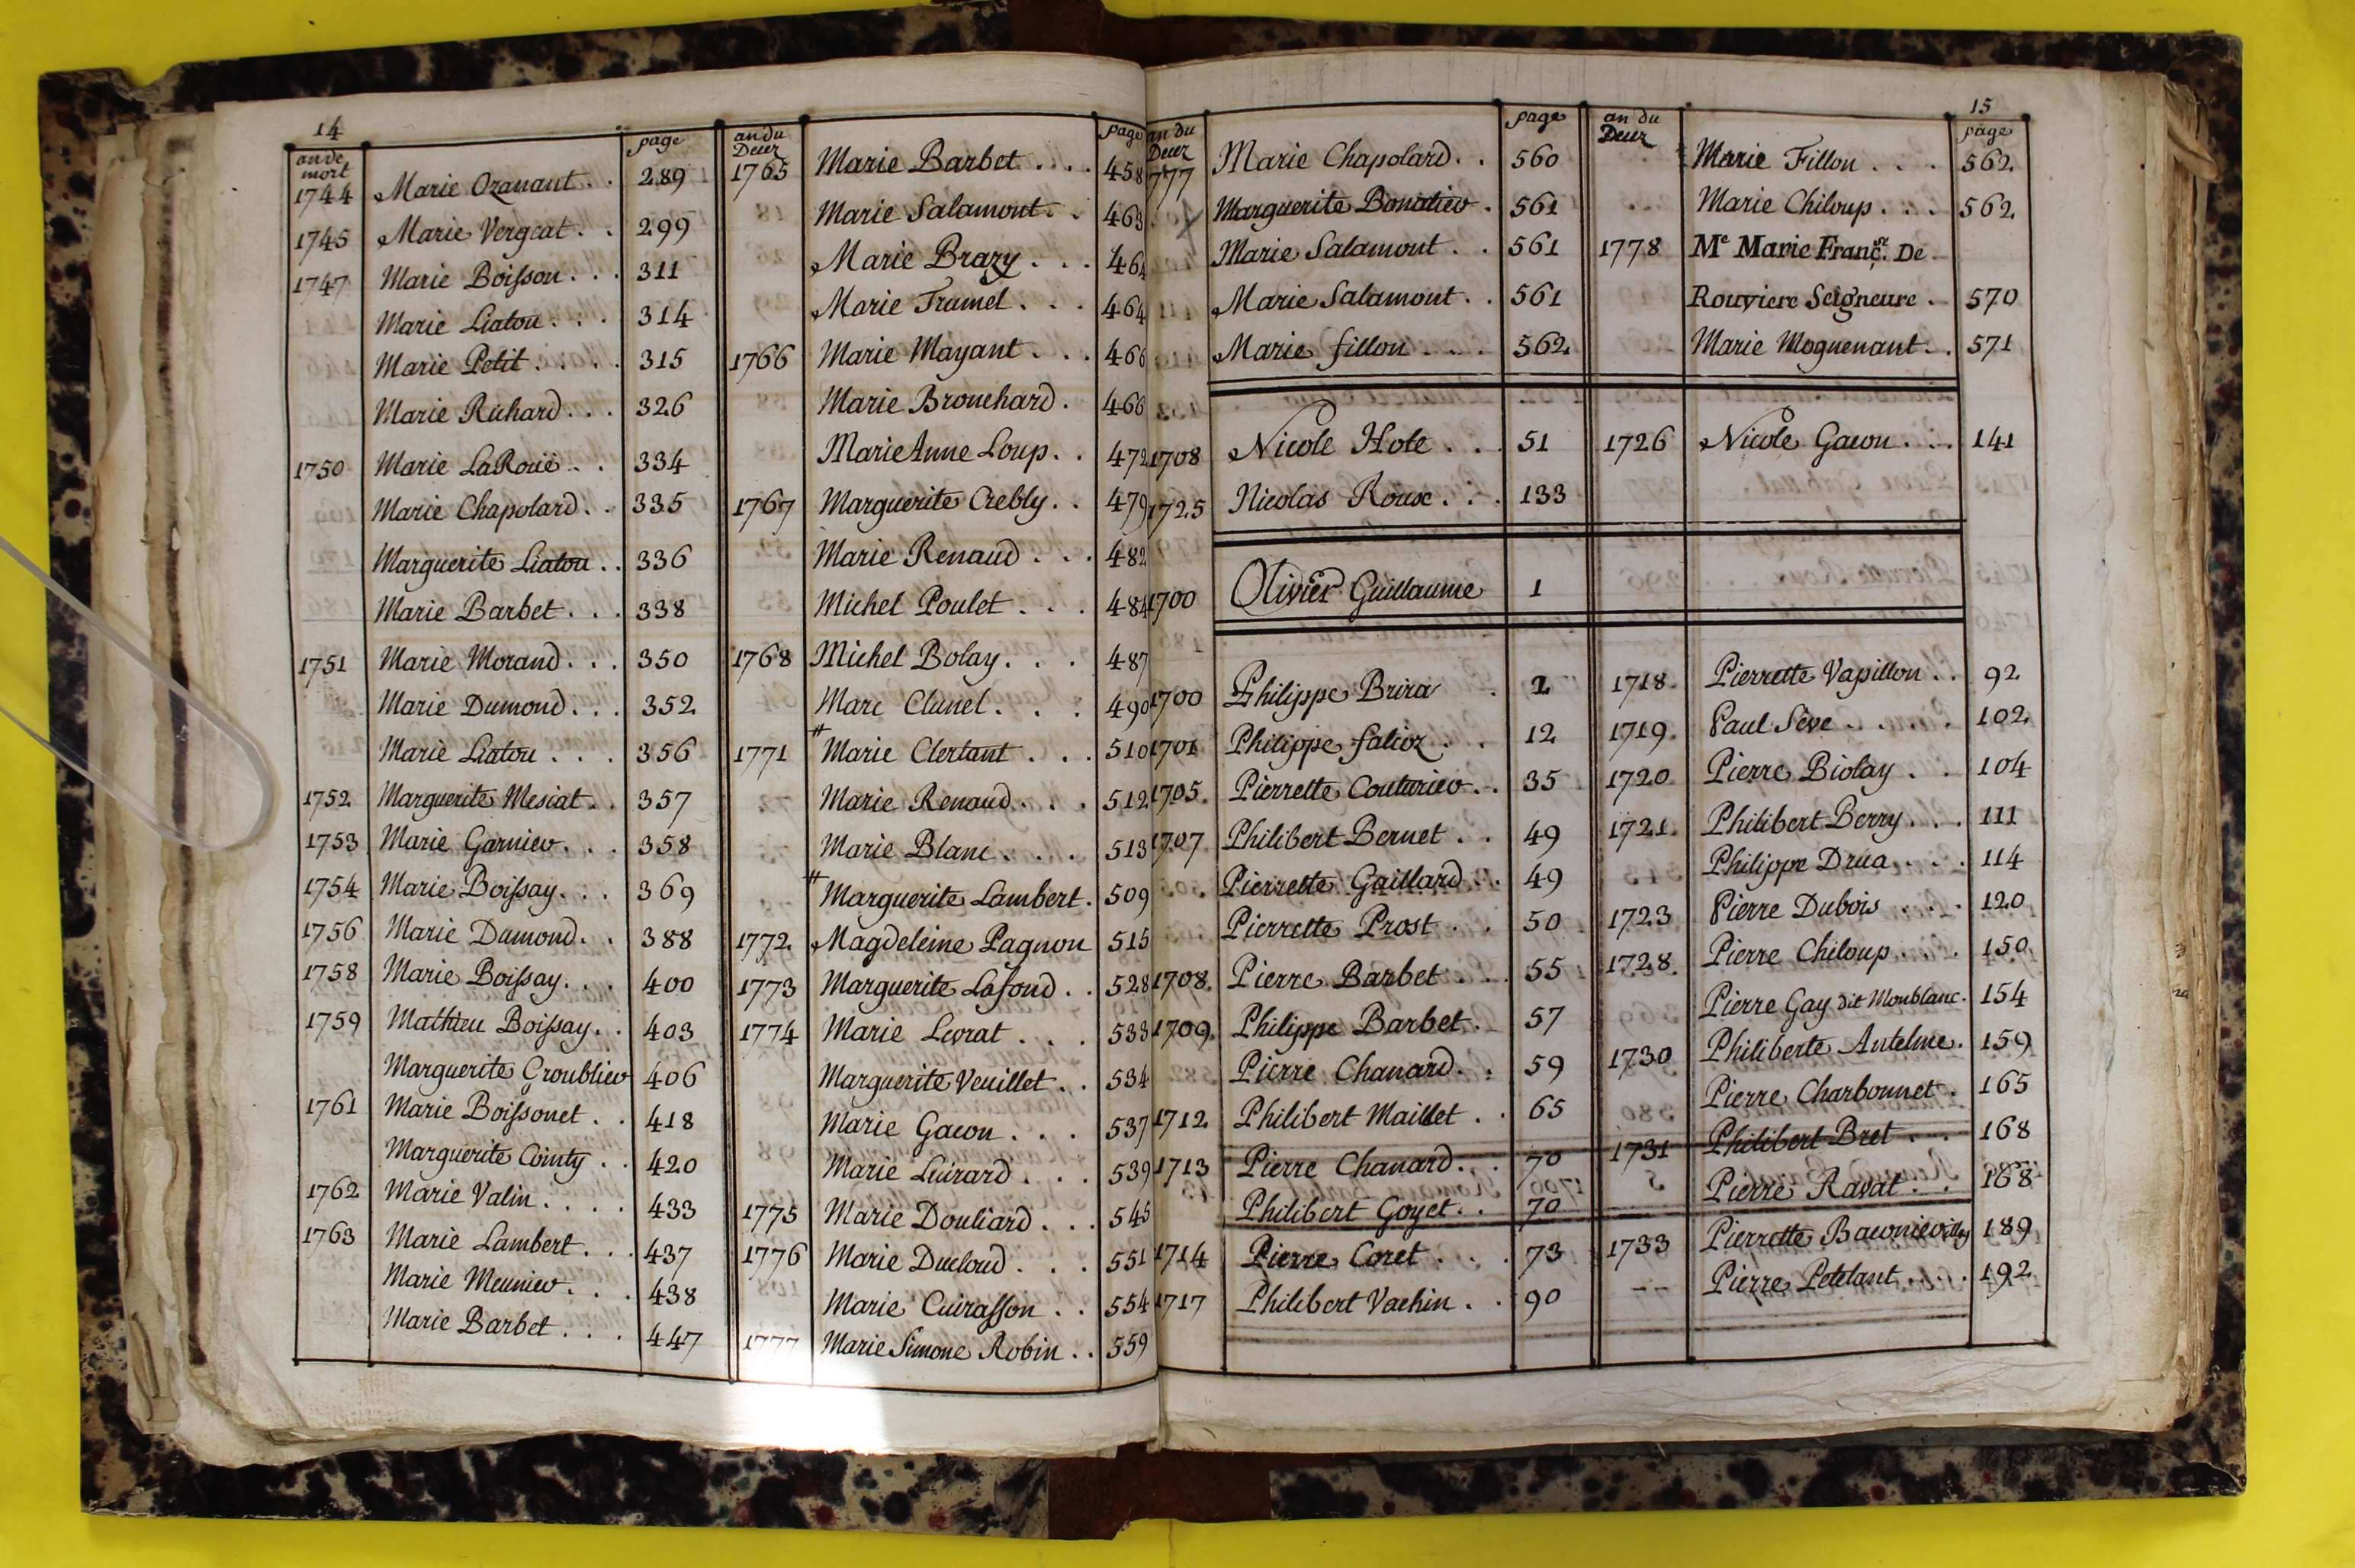 14
an de mort page
1744 Marie Ozanant . . 289
1745 Marie Vergeat . . 299
1747 Marie Boisson . . . 311
Marie Liatou . . . 314
Marie Petit . . . . . 315
Marie Richard . . . 326
1750 Marie LaRoüe . . . 334
Marie Chapolard . . 335
Marguerite Liatou . . 336
Marie Barbet . . . 338
1751 Marie Morand . . . 350
Marie Dumond . . . 352
Marie Liatou . . . 356
1752 Marguerite Mesiat . . 357
1753 Marie Garnier . . . 358
1754 Marie Boissay . . . 369
1756 Marie Dumond . . 388
1758 Marie Boissay . . . 400
1759 Mathieu Boissay . . 403
Marguerite Groublier 406
1761 Marie Boissonet . . 418
Marguerite Cointy . . 420
1762 Marie Valin . . . . 433
1763 Marie Lambert . . . 437
Marie Meunier . . . 438
Marie Barbet . . . 447
an du Decez page
1765 Marie Barbet . . . . 458
Marie Salamont . . 463
Marie Brazy . . . 464
Marie Tramel . . . 464
1766 Marie Mayant . . . 466
Marie Brouchard . 466
Marie Anne Loup . . 472
1767 Marguerite Crebly . . 479
Marie Renaud . . . 482
Michel Poulet . . . 484
1768 Michel Bolay . . . 487
Marc Clunel . . . 490
1771 # Marie Clertant . . . 510
Marie Renaud . . . 512
Marie Blanc . . . 513
# Marguerite Lambert . 509
1772 Magdeleine Pagnon 515
1773 Marguerite Lafond . . 528
1774 Marie Levrat . . . 533
Marguerite Veuillet . . 534
Marie Gacon . . . 537
Marie Luirard . . . 539
1775 Marie Douliard . . . 545
1776 Marie Ducloud . . . 551
Marie Cuirasson . . 554
1777 Marie Simone Robin . . 559
15
an du Decez page
777 Marie Chapolard . . 560
Marguerite Bonatier . 561
Marie Salamont . . 561
Marie Salamont . . 561
Marie fillon . . . 562
1708 Nicole Hote . . . 51
1725 Nicolas Roux . . . 133
1700 Olivier Guillaume 1
1700 Philippe Brira . 2
1701 Philippe falioz . . 12
1705 Pierrette Couturier . . 35
1707 Philibert Bernet . . 49
Pierrette Gaillard . . 49
Pierrette Prost . . 50
1708 Pierre Barbet . . . 55
1709 Philippe Barbet . . 57
Pierre Chanard . . 59
1712 Philibert Maillet . . 65
1713 Pierre Chanard . . . 70
Philibert Goyet . . 70
1714 Pierre Coret . . . 73
1717 Philibert Vachin . . 90
an du Decez page
Marie Fillon . . . 562
. . . Marie Chiloup . . . 562
1778 Me Marie Franç.se De
Rouviere Seigneure . 570
Marie Moguenant . . 571
1726 Nicole Gacon . . . 141
1718 Pierrette Vapillon . . 92
1719 Paul Sêve . . . . 102
1720 Pierre Biolay . . 104
1721 Philibert Berry . . . 111
Philippe Drua . . . 114
1723 Pierre Dubois . . . 120
1728 Pierre Chiloup . . . 150
Pierre Gay dit Monblanc . 154
1730 Philiberte Antelme . 159
Pierre Charbonnet . 165
1731 Philibert Bret . . . 168
Pierre Ravat . . 168
1733 Pierrette 189
-- Pierre Petelant . . . 192